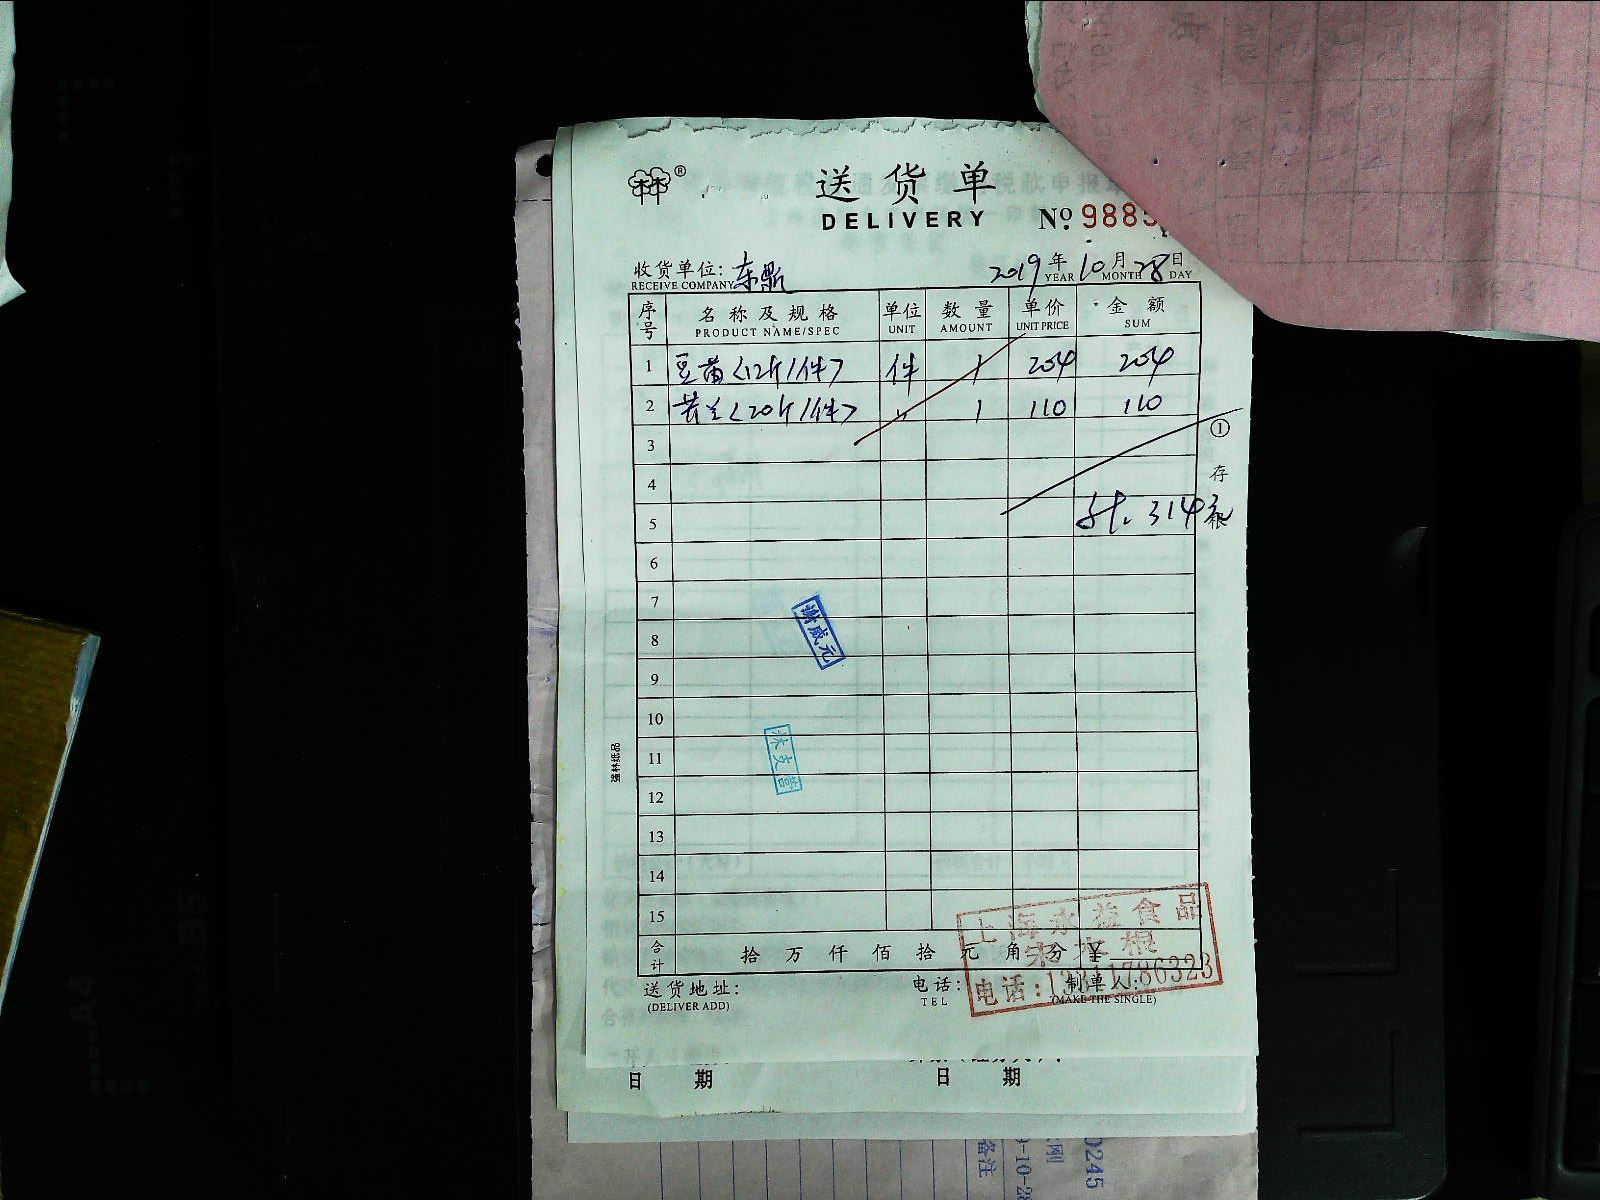 送货单
DELIVERY
№ 9885
收货单位: 东
RECEIVE COMPANY
2019 年 10 月 28 日
YEAR MONTH DAY
序号 名称及规格 单位 数量 单价 金额
PRODUCT NAME/SPEC UNIT AMOUNT UNIT PRICE SUM
1 豆苗<12斤/件> 件 1 204 204
2 芥兰<20斤/件> 〃 1 110 110
3
① 存根
4
5 计. 314元
6
7
谢咸元
8
9
10
11
12
13
14
15
强林纸品
上海永益食品
合计 拾 万 仟 佰 拾 元 角 分 ¥
电话:13311786323
送货地址: 电话: 制单人:
(DELIVER ADD) TEL (MAKE THE SINGLE)
日 期 日 期
备注
0245